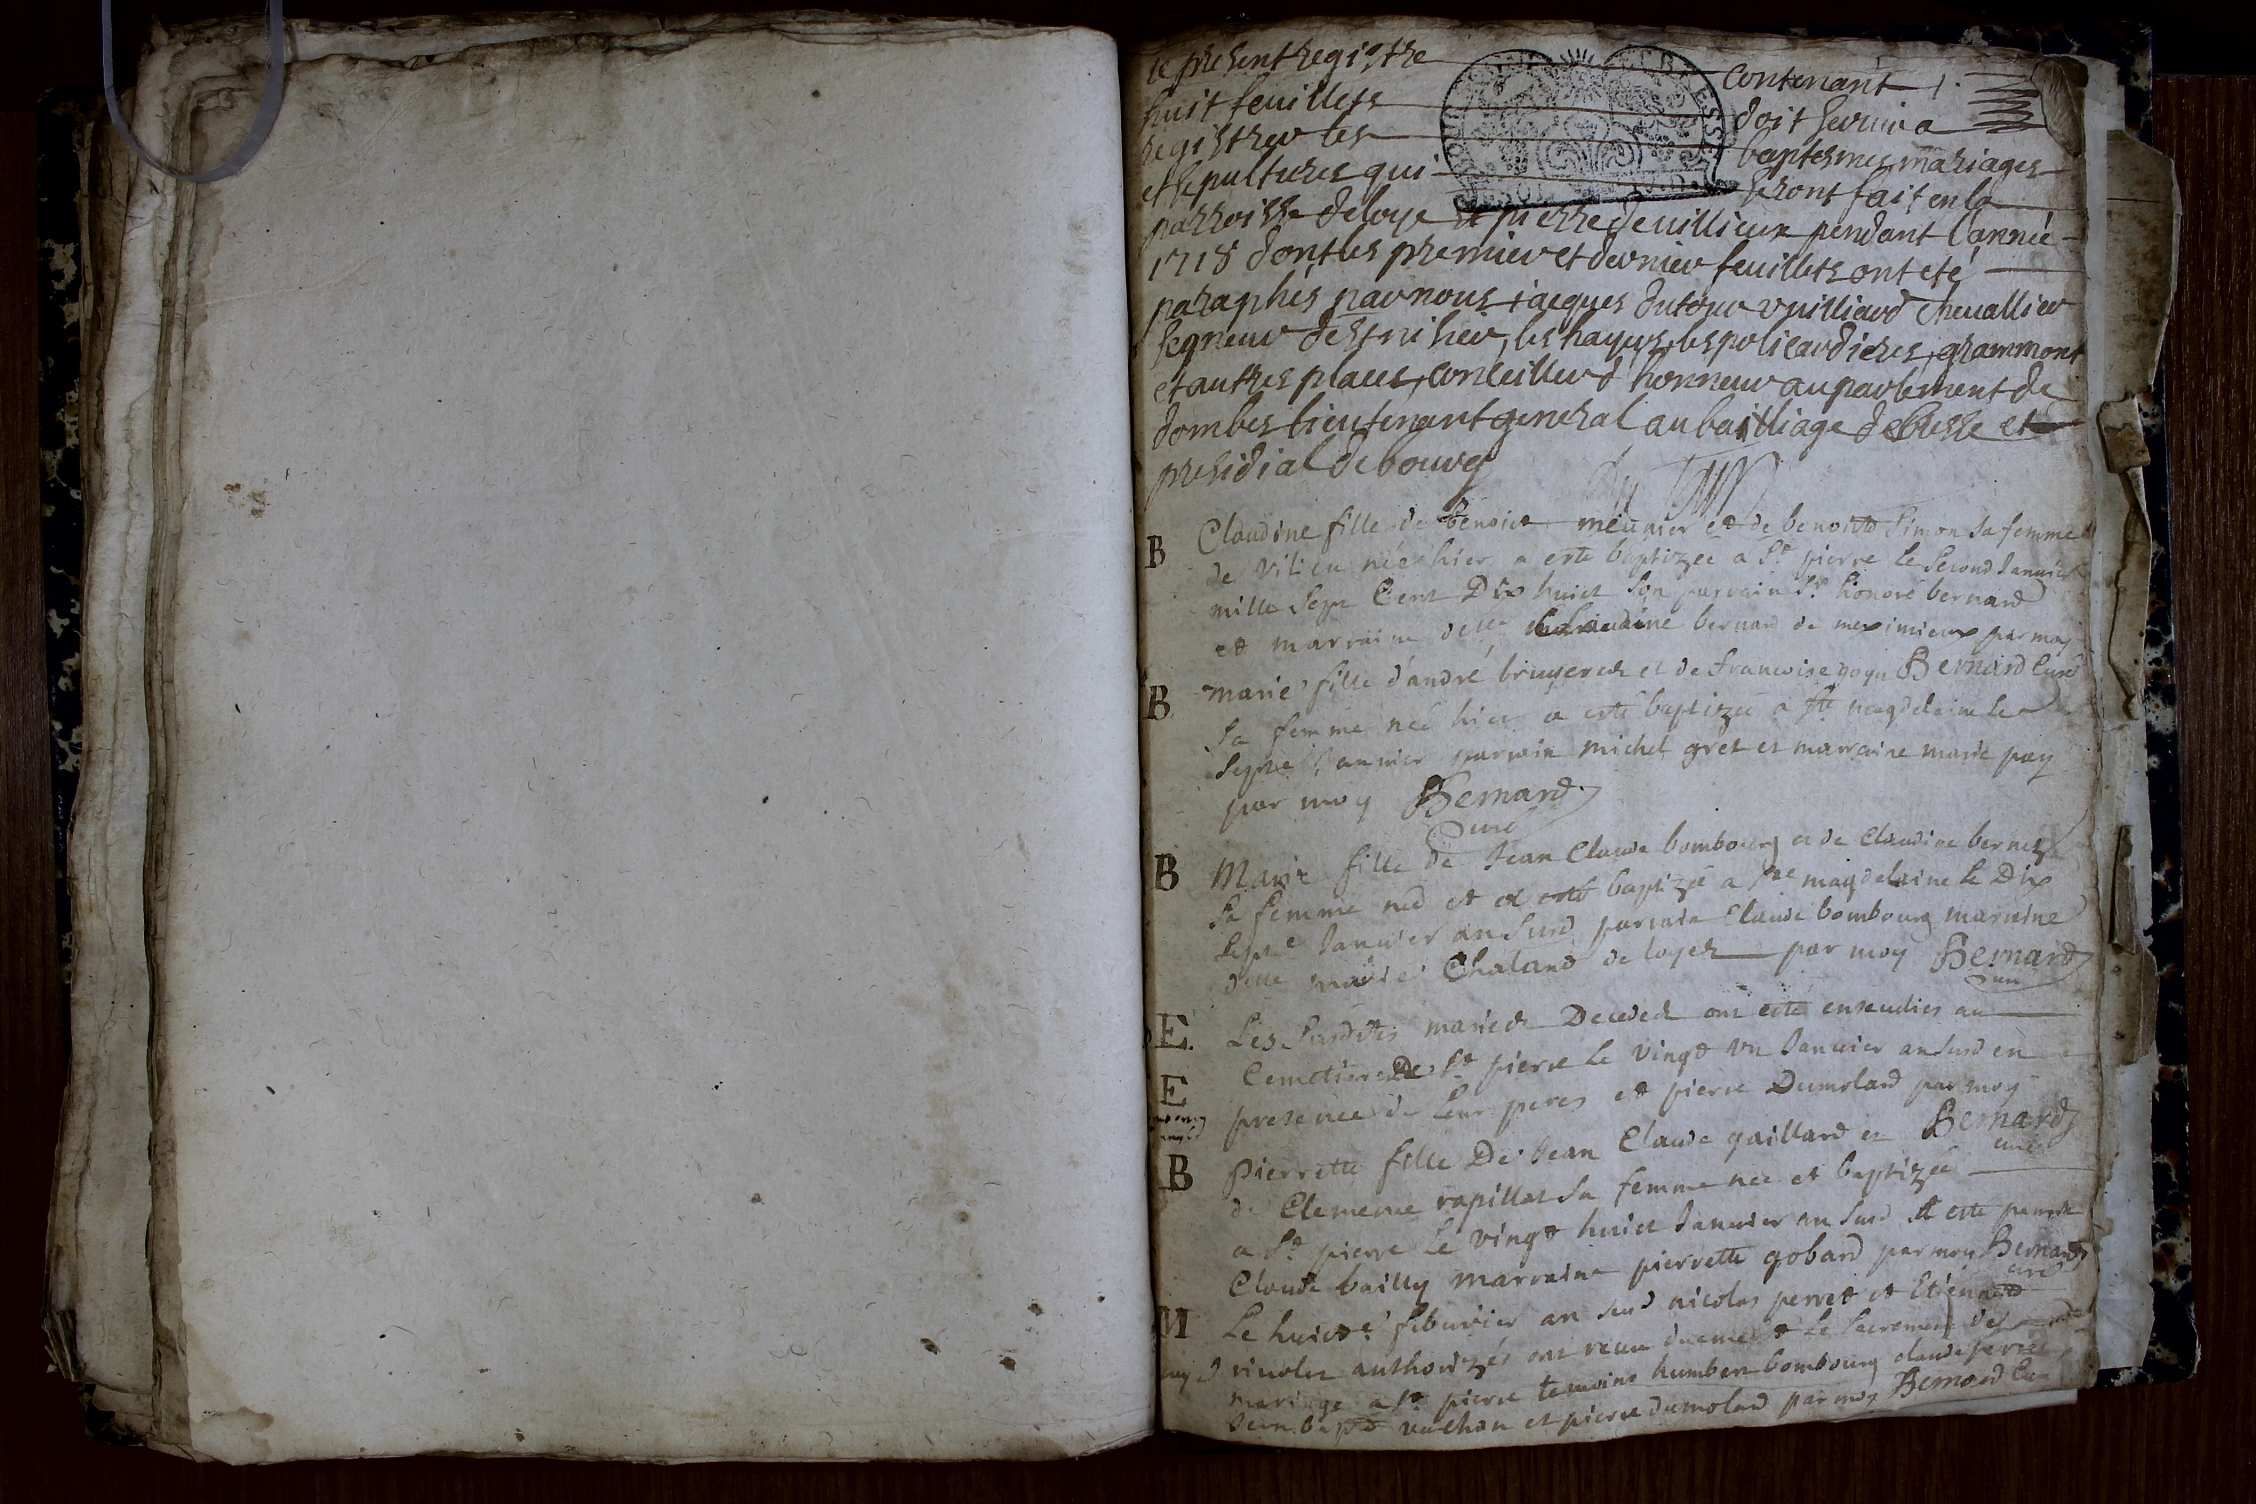 le present registre contenant 1.
huit feuillets doit servir a
registrer les baptesmes mariages
et sepultures qui seront fait en la
parroisse de loye st pierre de villieux pendant l'anneé
1718 dont les premier et dernier feuillets ont eté
paraphés par nous jacques dutour vuilliard chevallier
segneur de st nisier, les hayes, les policardieres, grammont
et autres places, conseiller d'honneur au parlement de
dombes lieutenant general au bailliage de bresse et
presidial de bourg
B Claudine fille de benoict meunier et de benoite Simon sa femme
de vilieu née hier a esté baptizée a St pierre le second Janvier
mille sept Cent Dix huict son parrain Sr honoré bernard
et marraine delle Claudine bernard de meximieux par moy
B marie fille d'andré bruyeres et de francoise Bernard Curé
sa femme née hier a esté baptizée a ste magdelaine le
septe Janvier parrain michel gret et marraine marie pey
par moy Bernard
Curé
B Marie fille de Jean Claude bombourg et de Claudine bernet
sa femme née et a esté baptizée a ste magdelaine le Dix
septe Janvier an susd parrain Claude bombourg marraine
delle marie Chaland de loyes par moy Bernard
Curé
E. Les susdites maries Decedes ont esté ensevelies au
Cemetiere De St pierre le vingt un Janvier an susd en
E presence de leur peres et pierre Dumolard par moy
B Pierrette fille De Jean Claude gaillard et Bernard
curé
de Clemence rapillat sa femme née et baptizée
a St pierre le vingt huict Janvier an susd et esté parrain
Claude bailly marraine pierrette gobard par moy Bernard
curé
M Le huicte febvrier an susd nicolas perret et Etiennette
rivolet authorizés ont receu le Sacrement de
mariage a St pierre temoins humbert bombourg claude perret
Jean bapt vuchon et pierre dumolard par moy Bernard Curé